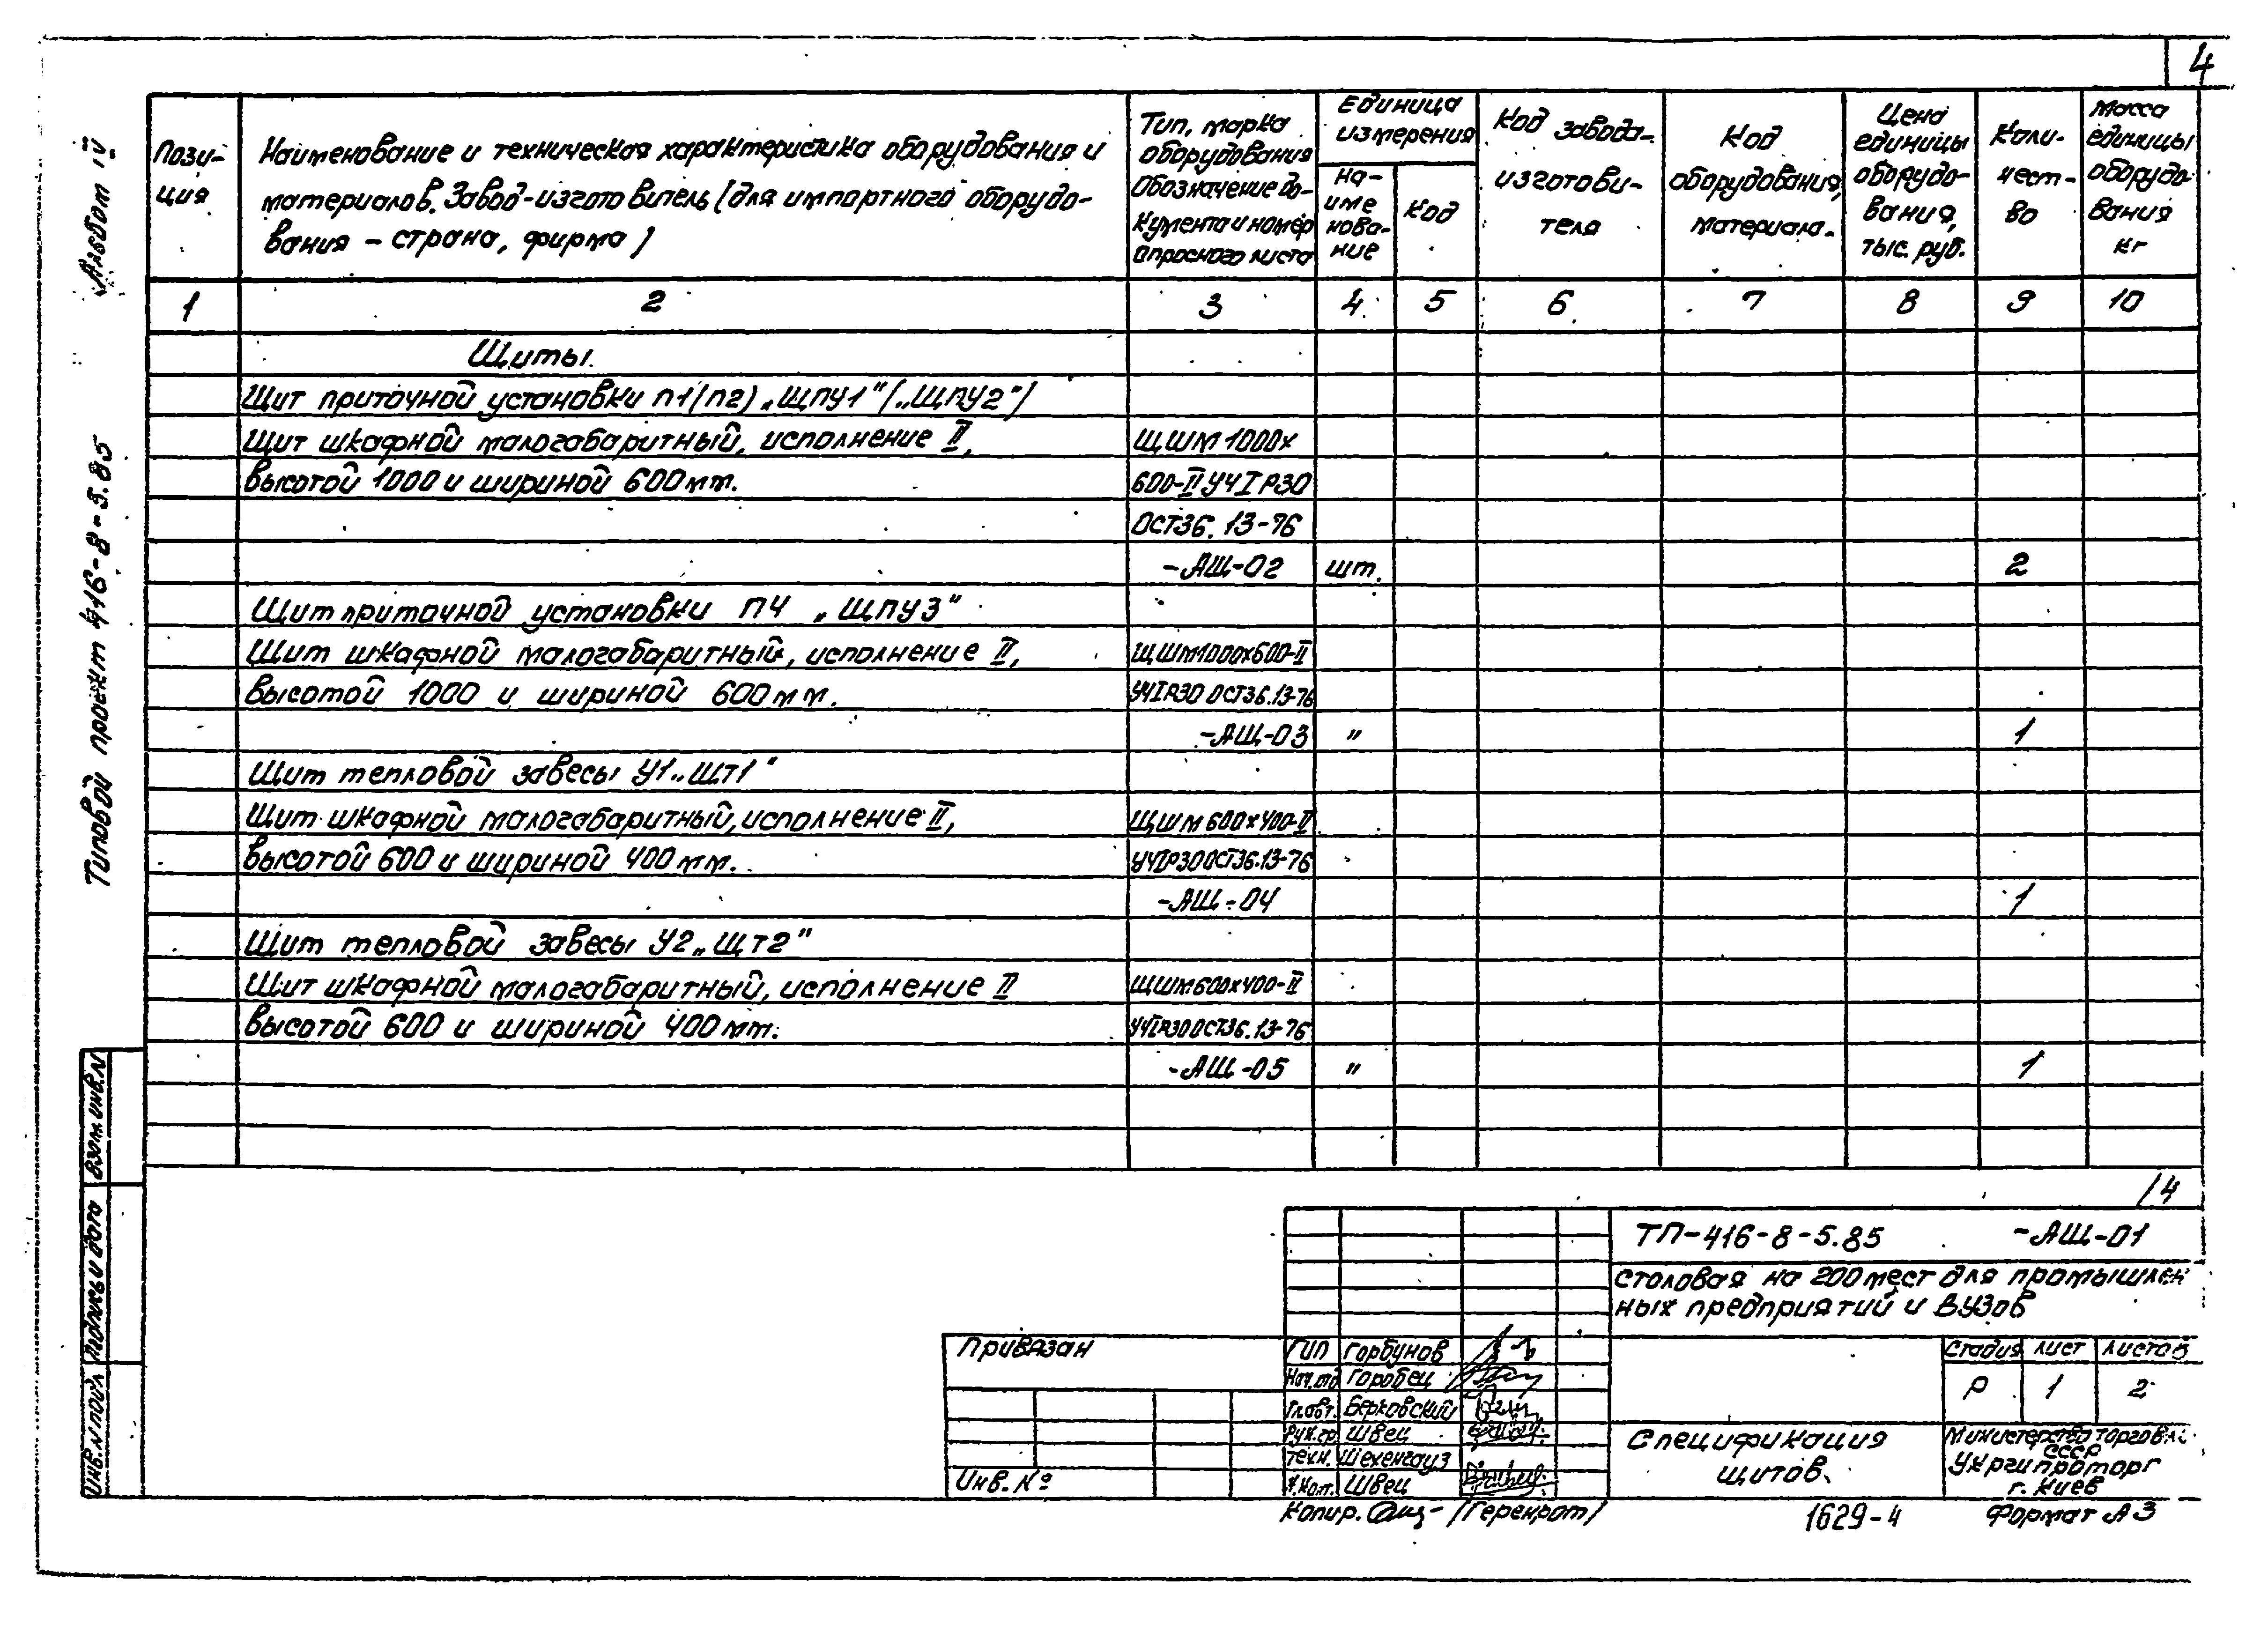 4
Альбом IV
Типовой проект 416-8-5.85
Пози-
ция
Наименование и техническая характеристика оборудования и
материалов. Завод-изготовитель (для импортного оборудо-
вания - страна, фирма)
Тип, марка
оборудования
Обозначение до-
кумента и номер
опросного листа
Единица
измерения
на-
име
нова-
ние
Код
Код завода-
изготови-
теля
Код
оборудования,
материала.
Цена
единицы
оборудо-
вания,
тыс. руб.
Коли-
чест-
во
Масса
единицы
оборудо-
вания
кг
1 2 3 4 5 6 7 8 9 10
Щиты.
Щит приточной установки П1(П2) „ЩПУ1" („ЩПУ2")
Щит шкафной малогабаритный, исполнение II, ЩШМ 1000х
высотой 1000 и шириной 600мм. 600-II УЧ IР30
ОСТ36.13-76
-АЩ-02 шт. 2
Щит приточной установки П4 „ЩПУ3"
Щит шкафной малогабаритный, исполнение II, ЩШМ1000х600-II
высотой 1000 и шириной 600мм. УЧIР30 ОСТ36.13-76
-АЩ-03 " 1
Щит тепловой завесы У1 „ЩТ1"
Щит шкафной малогабаритный, исполнение II, ЩШМ 600х400-II
высотой 600 и шириной 400мм. УЧIР30 ОСТ36.13-76
-АЩ-04 1
Щит тепловой завесы У2 „ЩТ2"
Щит шкафной малогабаритный, исполнение II ЩШМ600х400-II
высотой 600 и шириной 400мм. УЧIР30 ОСТ36.13-76
-АЩ-05 " 1
Взам. инв. N
Подпись и дата
Инв. N подл
14
ТП-416-8-5.85 -АЩ-01
Столовая на 200 мест для промышлен
ных предприятий и вузов
Привязан
Инв. №
ГИП Горбунов
Нач. отд Горобец
Гл. авт. Берковский
Рук. гр Швец
Техн. Шехенгауз
Н. кон. Швец
Стадия Лист Листов
Р 1 2
Спецификация
щитов.
Министерство торговли
СССР
Укргипроторг
г. Киев
Копир. (Геренрот)
1629-4
Формат А3